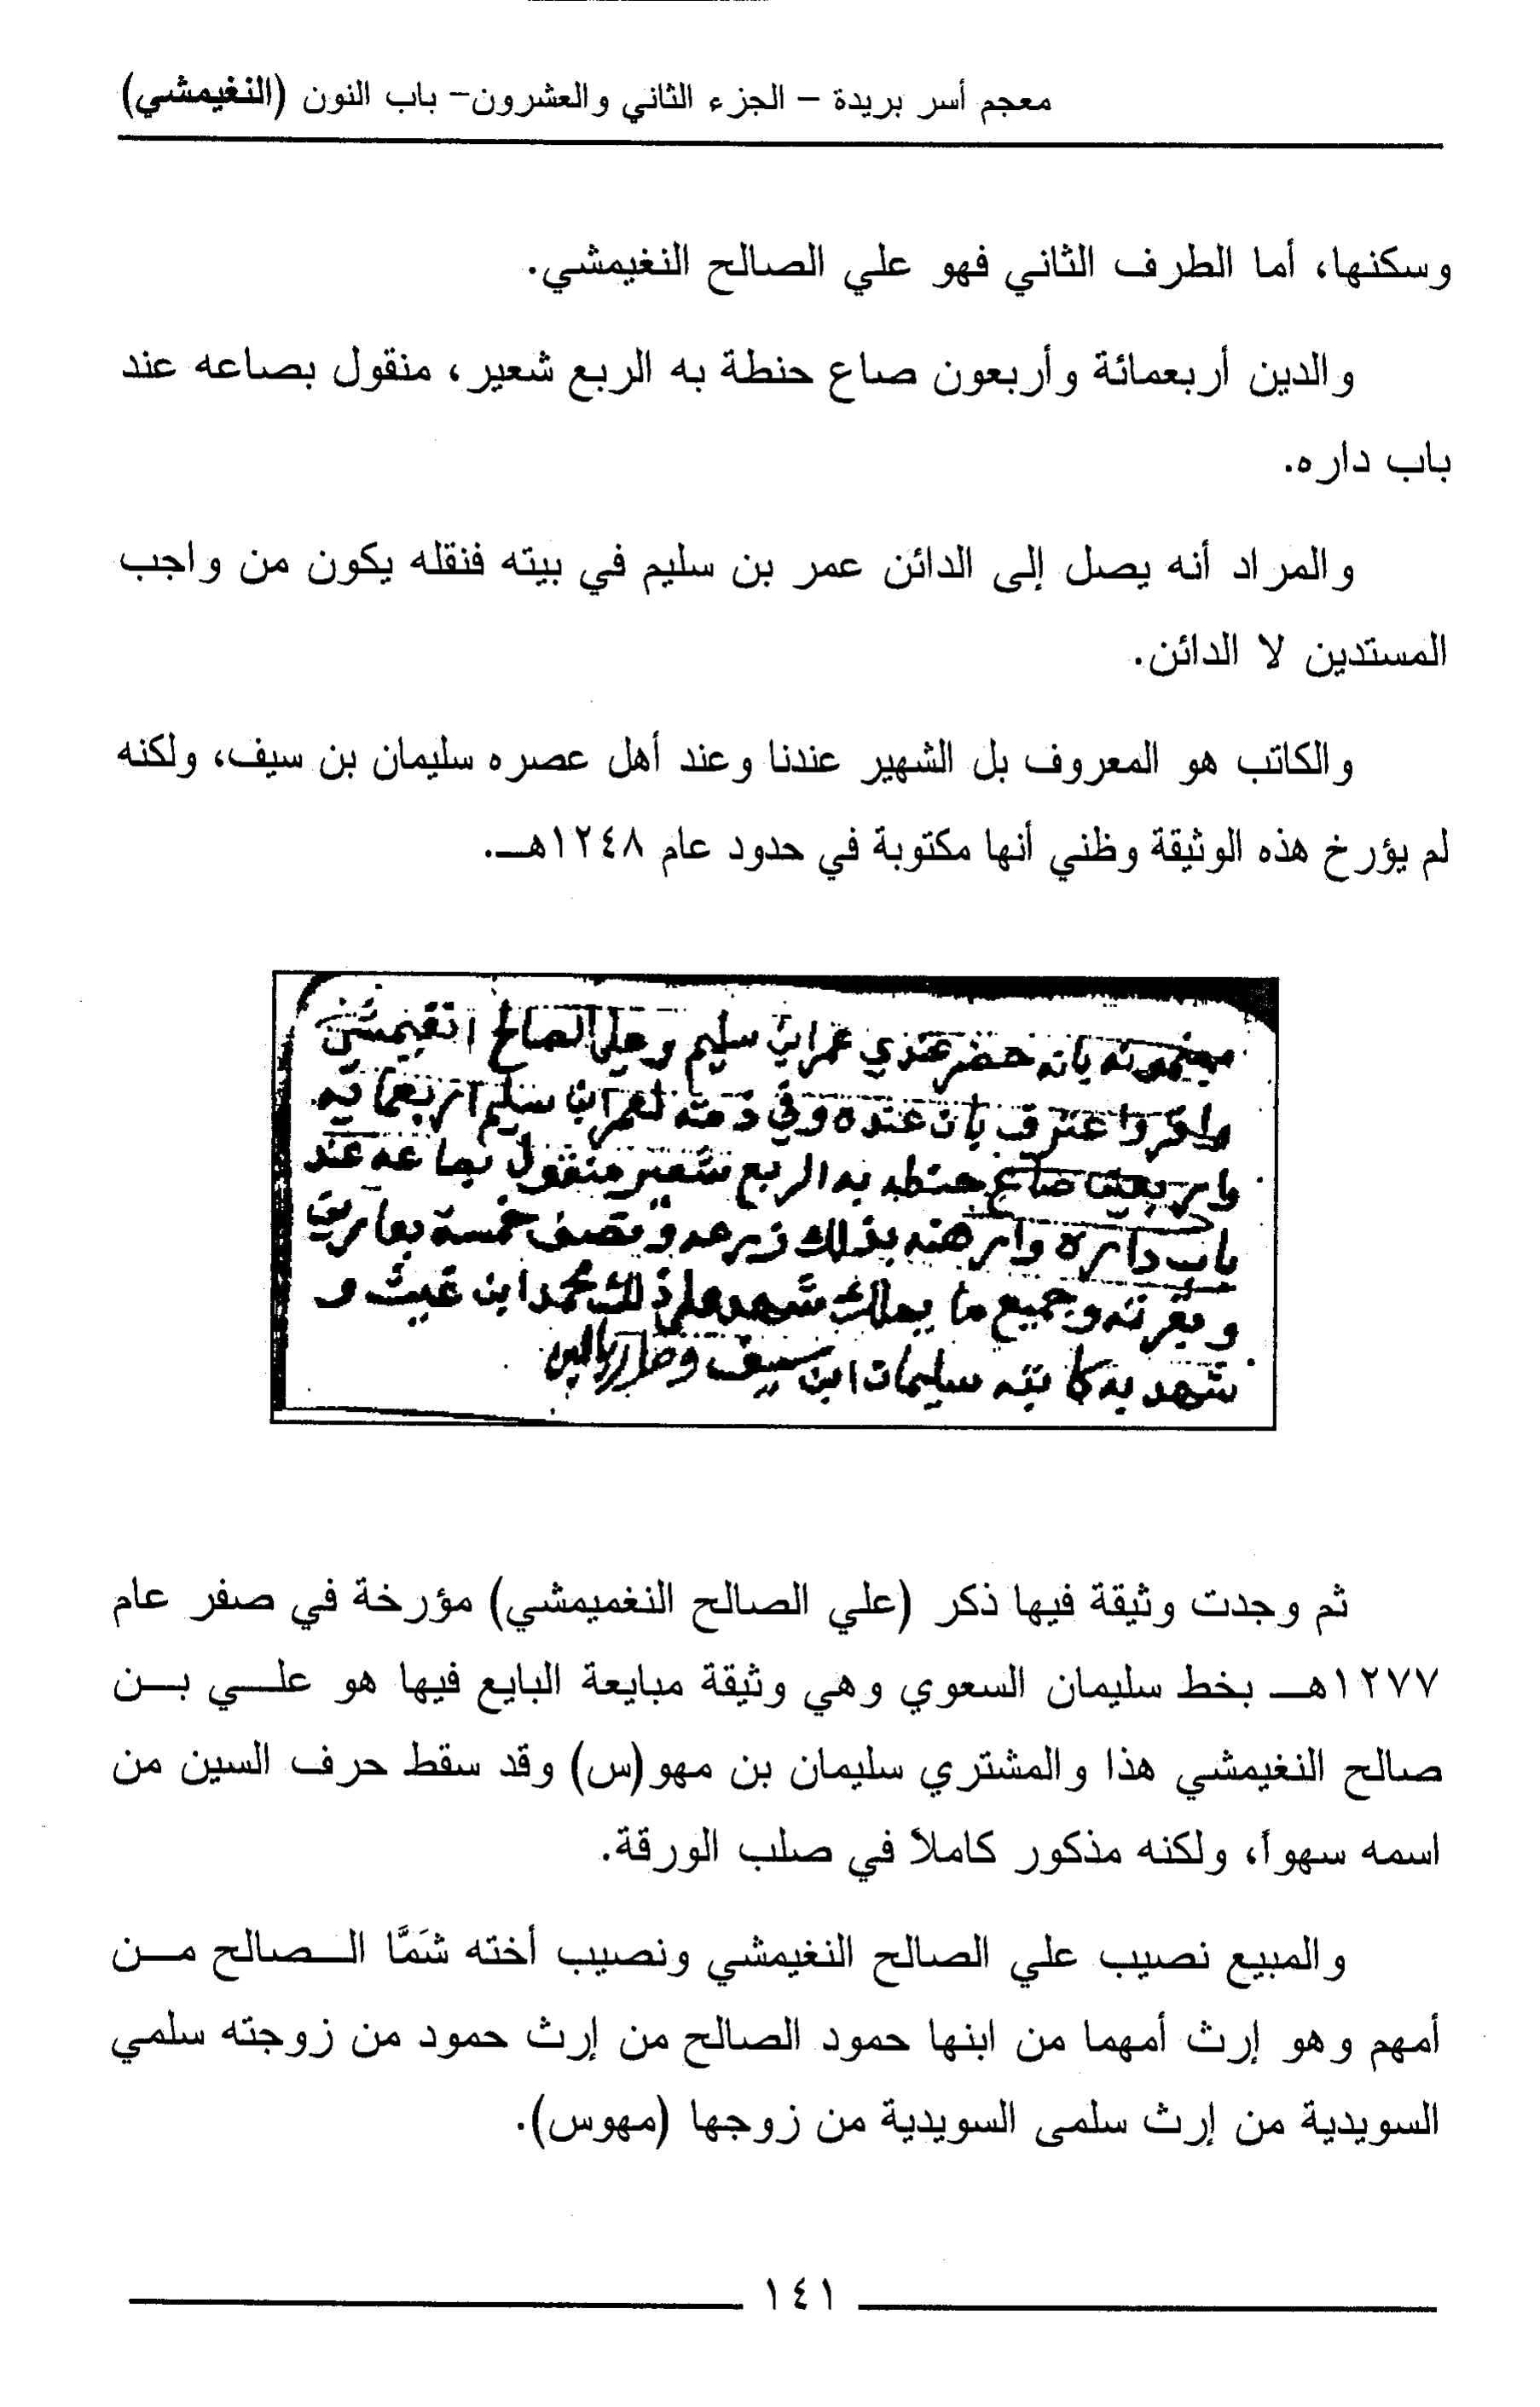 معجم أسر بريدة – الجزء الثاني والعشرون– باب النون (النغيمشي)
وسكنها، أما الطرف الثاني فهو علي الصالح النغيمشي.
والدين أربعمائة وأربعون صاع حنطة به الربع شعير، منقول بصاعه عند
باب داره.
والمراد أنه يصل إلى الدائن عمر بن سليم في بيته فنقله يكون من واجب
المستدين لا الدائن.
والكاتب هو المعروف بل الشهير عندنا وعند أهل عصره سليمان بن سيف، ولكنه
لم يؤرخ هذه الوثيقة وظني أنها مكتوبة في حدود عام ١٢٤٨هـ.
مضمونه بانه حضر عندي عمر ابن سليم وعلي الصالح النغيمشي
واقر واعترف بان عنده وفي ذمته لعمر ابن سليم اربعماية
واربعين صاع حنطه به الربع شعير منقول بصاعه عند
باب داره وارهنه بذلك زرعه ونصف خمسة بعارين
وبقرته وجميع ما يملك شهد علي ذلك محمد ابن غيث و
شهد به كاتبه سليمان ابن سيف
ثم وجدت وثيقة فيها ذكر (علي الصالح النغميمشي) مؤرخة في صفر عام
١٢٧٧هـ بخط سليمان السعوي وهي وثيقة مبايعة البايع فيها هو علي بن
صالح النغيمشي هذا والمشتري سليمان بن مهو(س) وقد سقط حرف السين من
اسمه سهواً، ولكنه مذكور كاملاً في صلب الورقة.
والمبيع نصيب علي الصالح النغيمشي ونصيب أخته شَمَّا الصالح من
أمهم وهو إرث أمهما من ابنها حمود الصالح من إرث حمود من زوجته سلمي
السويدية من إرث سلمى السويدية من زوجها (مهوس).
١٤١